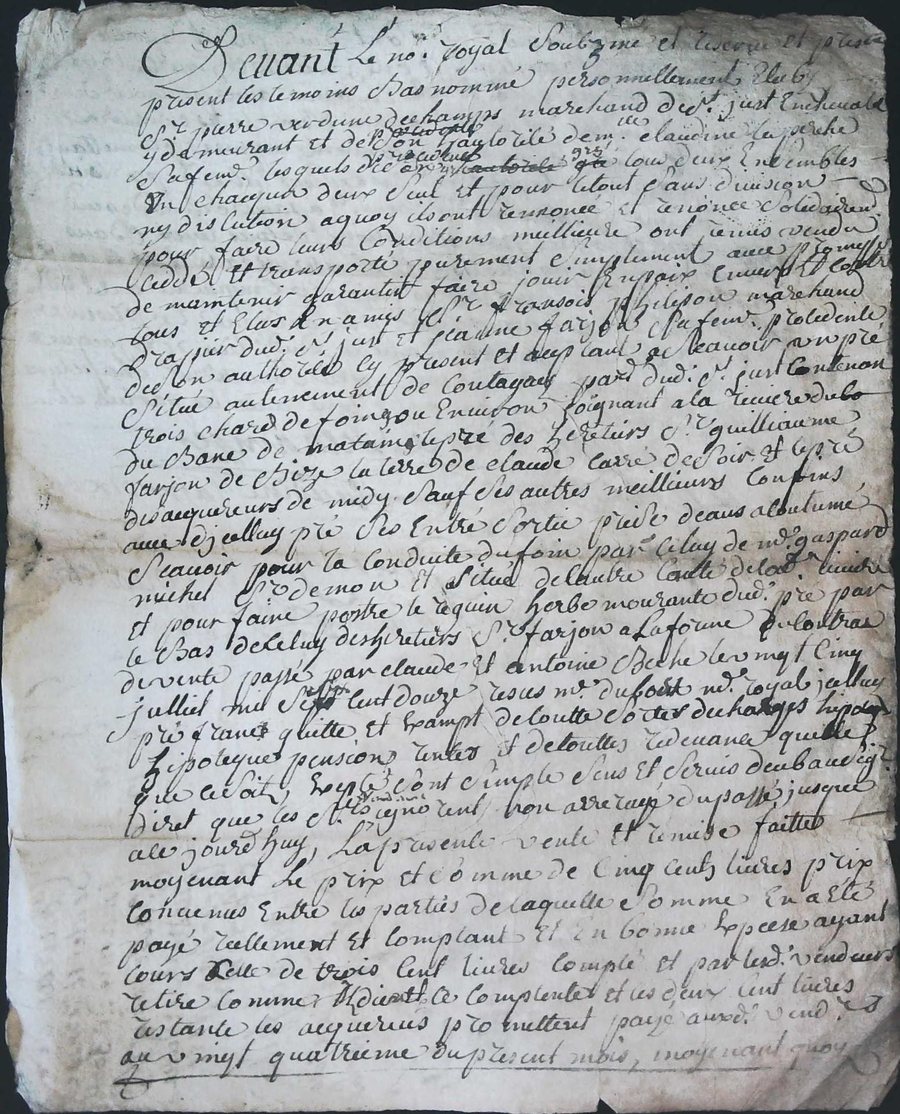 Devant Le no.e royal Soubzne et reserve et
present les temoins Bas nommé personnellement Establys
S.r pierre verdune deschamps marchand de S.t just Enchevalet
y demeurant et de Son authorité dem.lle claudine
Safem.e lesquels de gré tous deux Ensembles
Un chacquin deux Seul et pour letout Sans division
ny dislcution aquoy ils ont renoncé et renonce Solidairem.t
pour faire leurs Conditions meillieure ont remis vendu
ceddé et transporté purement Simplement avec promesse
de maintenir garantir faire jouir Enpaix Envers et Contre
tous et Elus En amys S.r fransois philipou marchand
Drappier dud. S.t just et jeanne farjon Safem.e procedente
deson authorité Cy present et aceptant Scavoir un pré
Situé auterrement de Coutagay par.e dud. S.t just Contenan
trois chard de foing ou Environ joignant a la riviere dubo
du Bane de matain lepré des hereteirs S.r guilliaume
farjon de Bize la terre de claude Carré de Soir et lepré
disacquereurs de midy. Sauf Ses autres meillieurs Confins
avec dycelluy pré Ses Entré Sortie prise deaus acoutumé
Scavoir pour la Conduite dufoin par Celuy de m.e gaspard
michel S.r demon et Situé delautre Coute delad. riviere
et pour faire postre le reguin herbe mourante dud. pré par
le Bas deCeluy desheretiers S.r farjon alaforme
devente passé par claude et antoine Beche levingt Cinq
julliet mil Sept Cent Douze resus m.e dubost no.e royal jcelluy
pré franct quitte et Exampt detoutte Sortes decharges
hipoteque pension rentes et detouttes redevance quelle
que ceSoit, Exepté Cont Simple Sens et Servis deubauseig.r
diret que les S.rs vendeurs ignorent, non arreragé dupassé jusques
ace jourd huy, Laprésente vente et remise faitte
moyenant Le prix et Comme de Cinq cents livres prix
Convenus Entre les parties delaquelle Somme En a Eté
payé réellement et Comptant et En bonne Expeese ayant
Cours Celle de trois Cent livres Compté et par lesd. vendeurs
retiré Comme Contenter et les deux Cent livres
restante les acquereurs promettent payé auxd. vend.rs
au vingt quatrieme dupresent mois, moyenant quoy